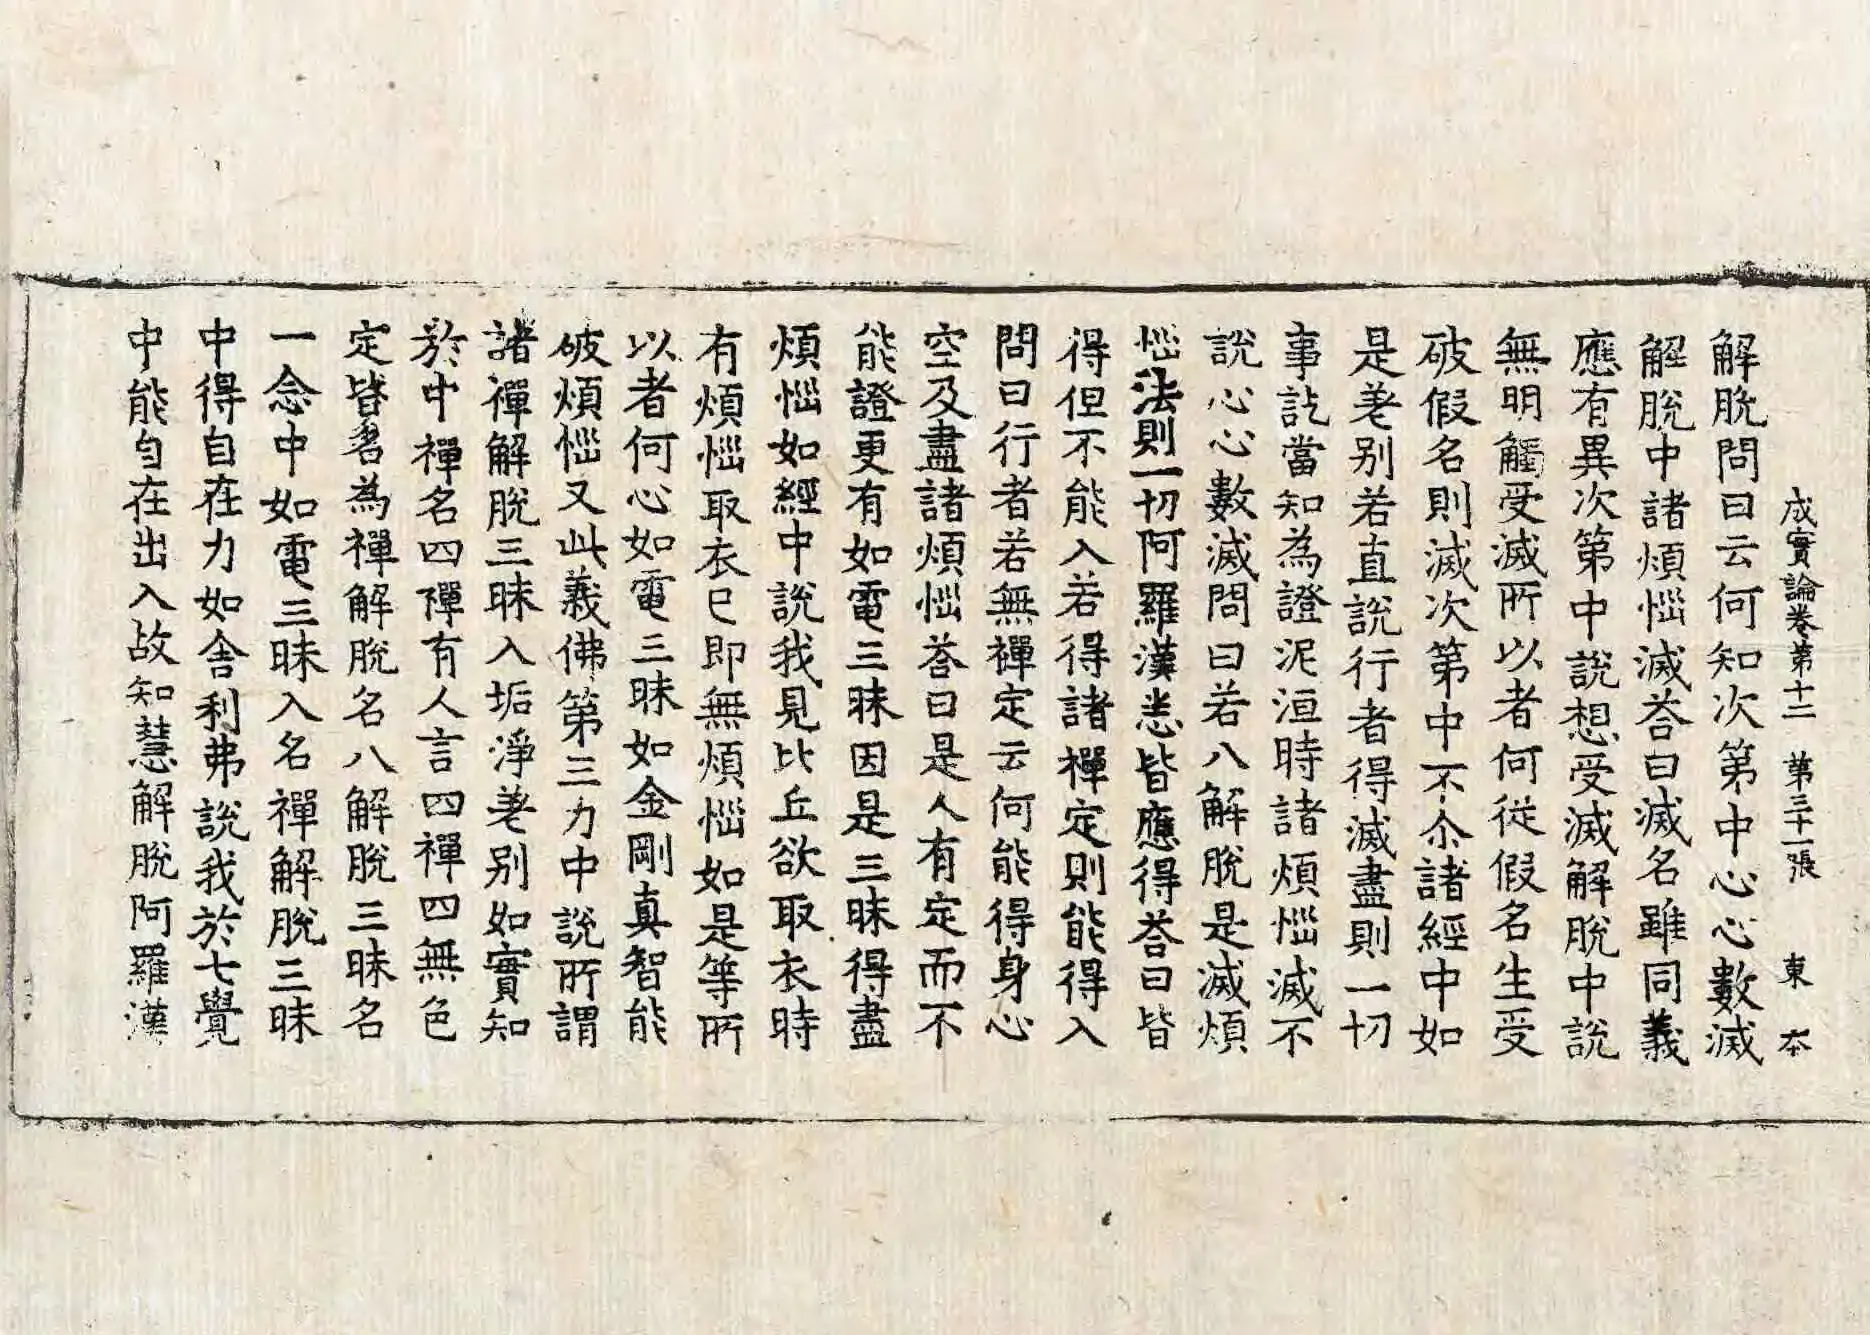 成實論卷第十二 第三十一張 東 夲
解脫問曰云何知次第中心心數滅
解脫中諸煩惱滅荅曰滅名雖同義
應有異次第中說想受滅解脫中說
無明觸受滅所以者何從假名生受
破假名則滅次第中不尒諸經中如
是差別若直說行者得滅盡則一切
事訖當知為證泥洹時諸煩惱滅不
說心心數滅問曰若八解脫是滅煩
惱法則一切阿羅漢悉皆應得荅曰皆
得但不能入若得諸禪定則能得入
問曰行者若無禪定云何能得身心
空及盡諸煩惱荅曰是人有定而不
能證更有如電三昧因是三昧得盡
煩惱如經中說我見比丘欲取衣時
有煩惱取衣已即無煩惱如是等所
以者何心如電三昧如金剛真智能
破煩惱又此義佛第三力中說所謂
諸禪解脫三昧入垢淨差別如實知
於中禪名四禪有人言四禪四無色
定皆名為禪解脫名八解脫三昧名
一念中如電三昧入名禪解脫三昧
中得自在力如舍利弗說我於七覺
中能自在出入故知慧解脫阿羅漢